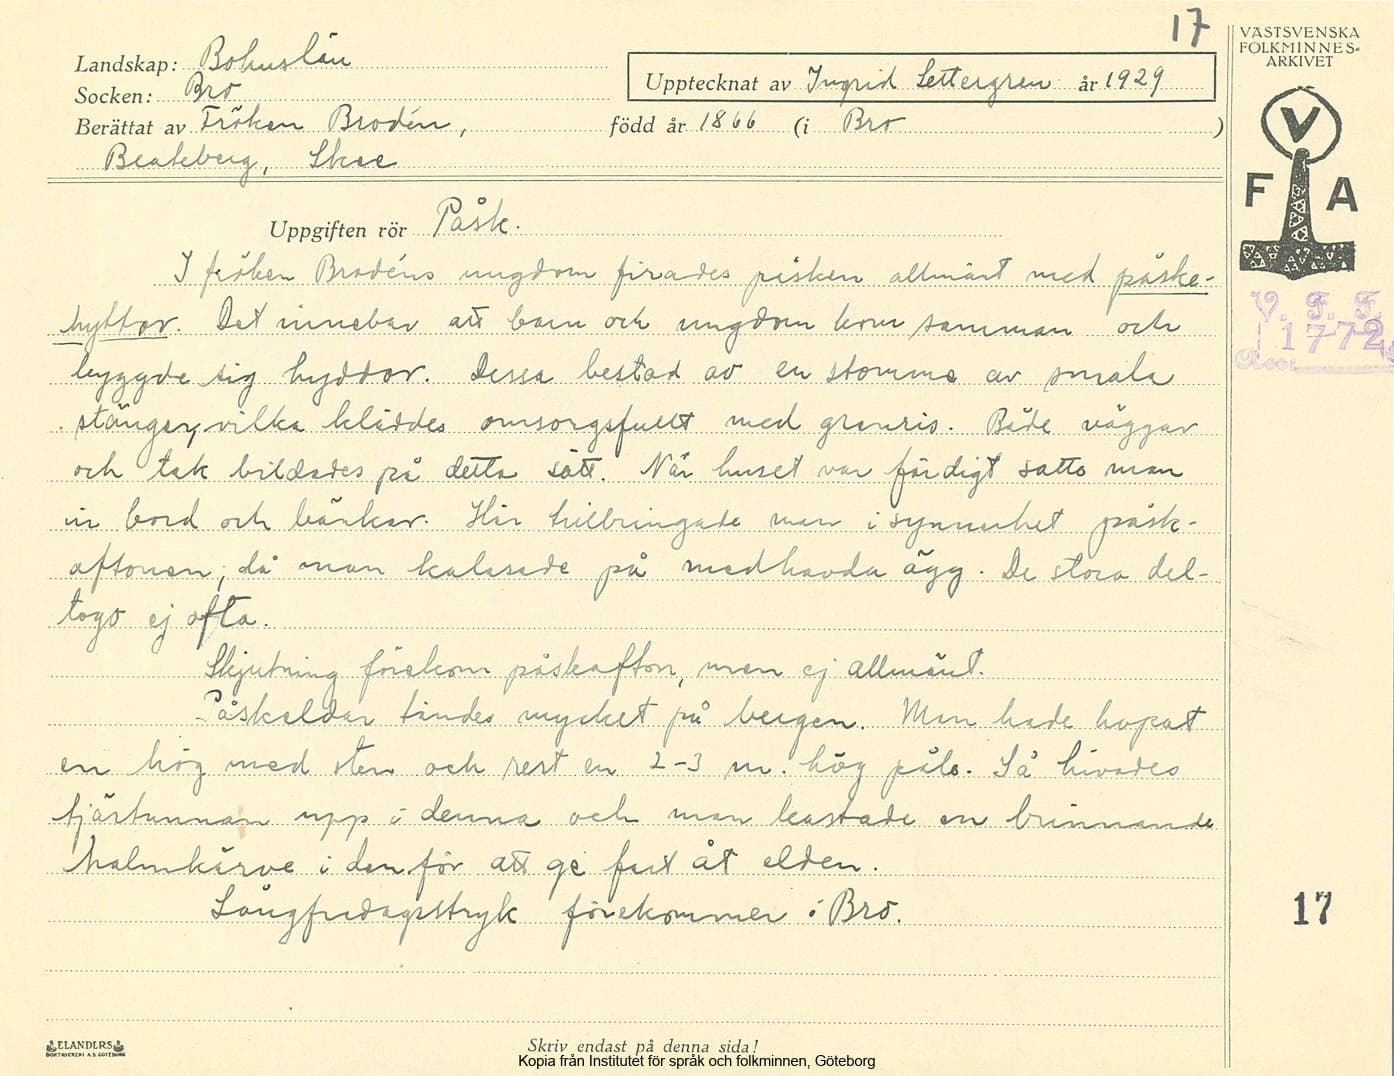 17
VÄSTSVENSKA
FOLKMINNES-
ARKIVET
Landskap: Bohuslän
Upptecknat av Ingrid Settergren år 1929
Socken: Bro
Berättat av Fröken Brodén, född år 1866 (i Bro )
Beateberg, Skee
V
F A
Uppgiften rör Påsk.
I fröken Brodéns ungdom firades påsken allmänt med påske-
hyttor. Det innebar att barn och ungdom kom samman och
byggde sig hyddor. Dessa bestod av en stomme av smala
stänger, vilka kläddes omsorgsfullt med granris. Både väggar
och tak bildades på detta sätt. När huset var färdigt satte man
in bord och bänkar. Här tillbringade man i synnerhet påsk-
aftonen, då man kalasade på medhavda ägg. De stora del-
togo ej ofta.
Skjutning förekom påskafton, men ej allmänt.
Påskeldar tändes mycket på bergen. Man hade hopat
en hög med sten och rest en 2-3 m. hög påle. Så hivades
tjärtunnan upp i denna och man kastade en brinnande
halmkärve i den för att ge fart åt elden.
Långfredagsstryk förekommer i Bro.
V. F. F.
1772
17
ELANDERS
BOKTRYCKERI A.B. GÖTEBORG
Skriv endast på denna sida!
Kopia från Institutet för språk och folkminnen, Göteborg